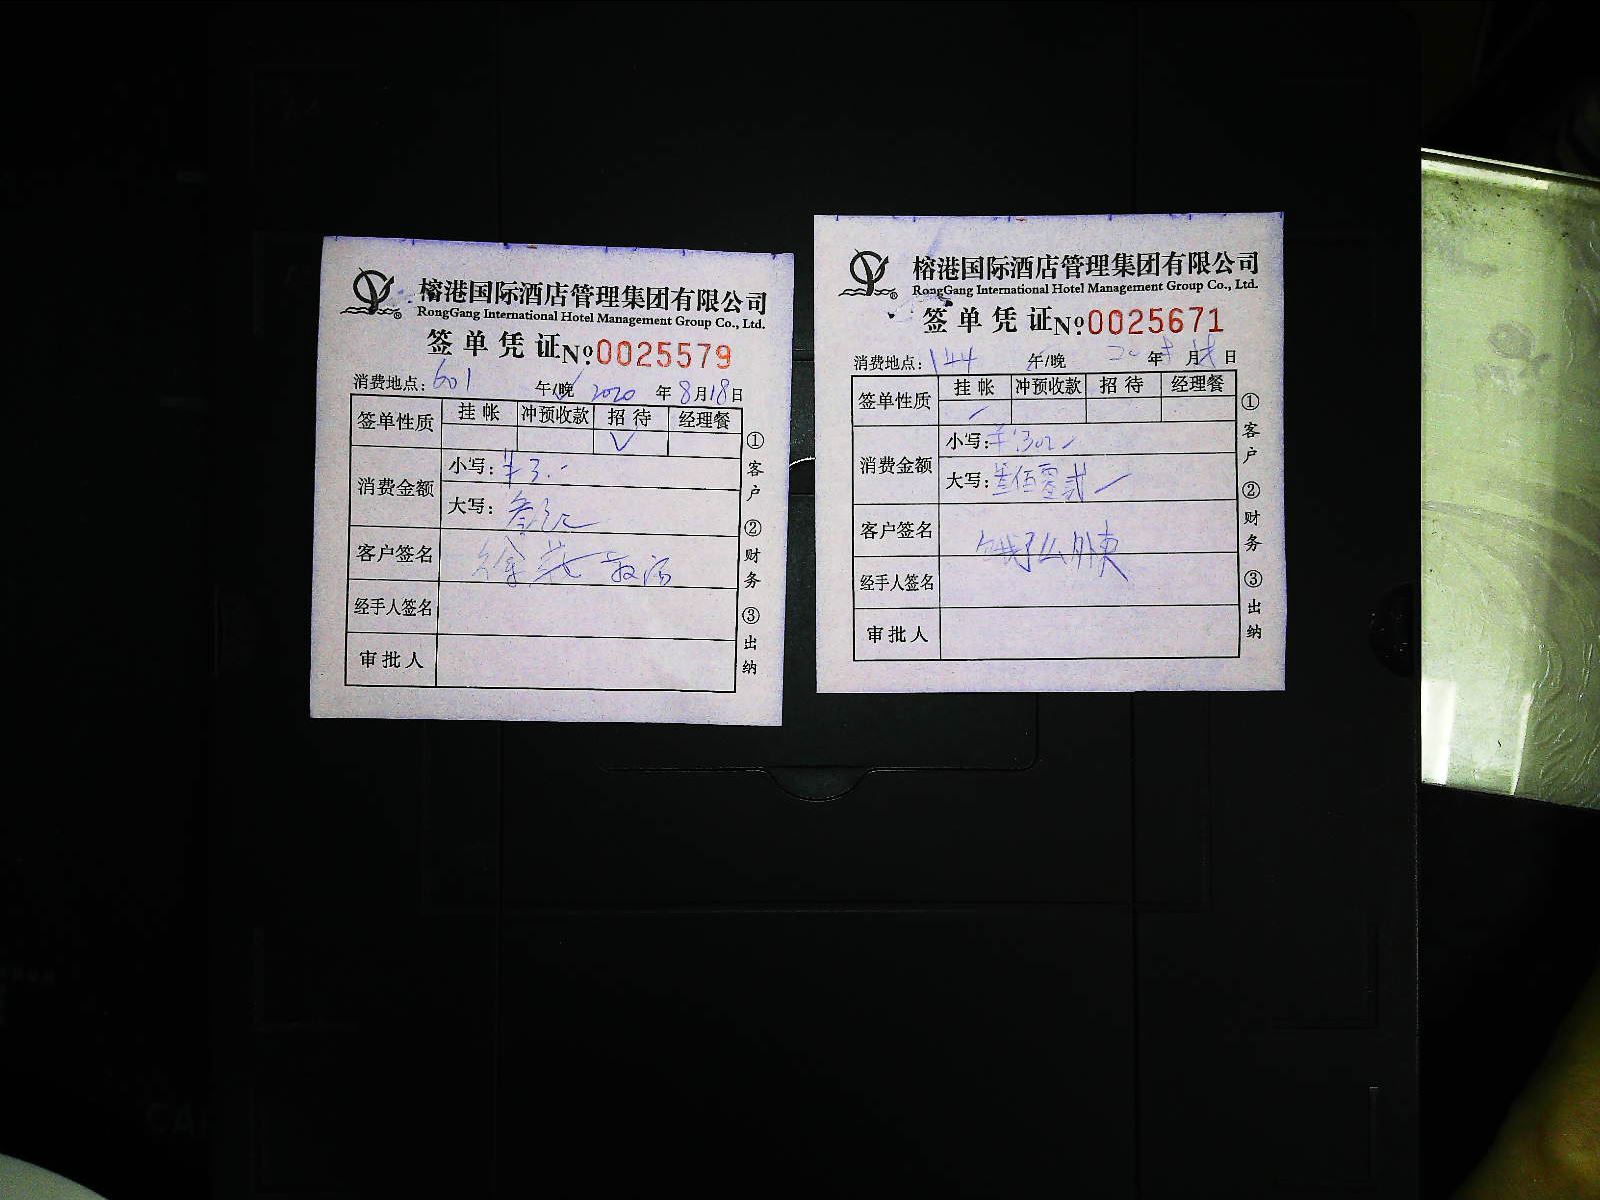 榕港国际酒店管理集团有限公司
RongGang International Hotel Management Group Co., Ltd.
签单凭证 №0025579
消费地点: 601 午/晚 2020 年 8月18日
签单性质 挂帐 冲预收款 招待 经理餐
✓
消费金额 小写: ¥3.-
大写: 叁元
客户签名 徐
经手人签名
审批人
①客户 ②财务 ③出纳
榕港国际酒店管理集团有限公司
RongGang International Hotel Management Group Co., Ltd.
签单凭证 №0025671
消费地点: 144 午/晚 年 月 日
签单性质 挂帐 冲预收款 招待 经理餐
消费金额 小写: ¥302
大写: 叁佰零贰
客户签名 饿了么外卖
经手人签名
审批人
①客户 ②财务 ③出纳